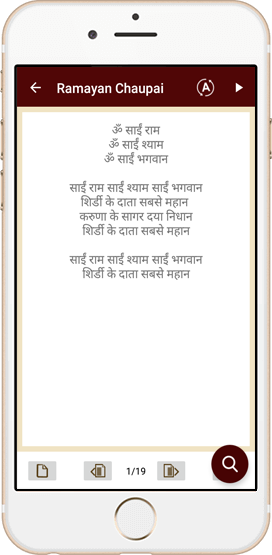 Ramayan Chaupai
ॐ साईं राम
ॐ साईं श्याम
ॐ साईं भगवान
साईं राम साईं श्याम साईं भगवान
शिर्डी के दाता सबसे महान
करुणा के सागर दया निधान
शिर्डी के दाता सबसे महान
साईं राम साईं श्याम साईं भगवान
शिर्डी के दाता सबसे महान
1/19